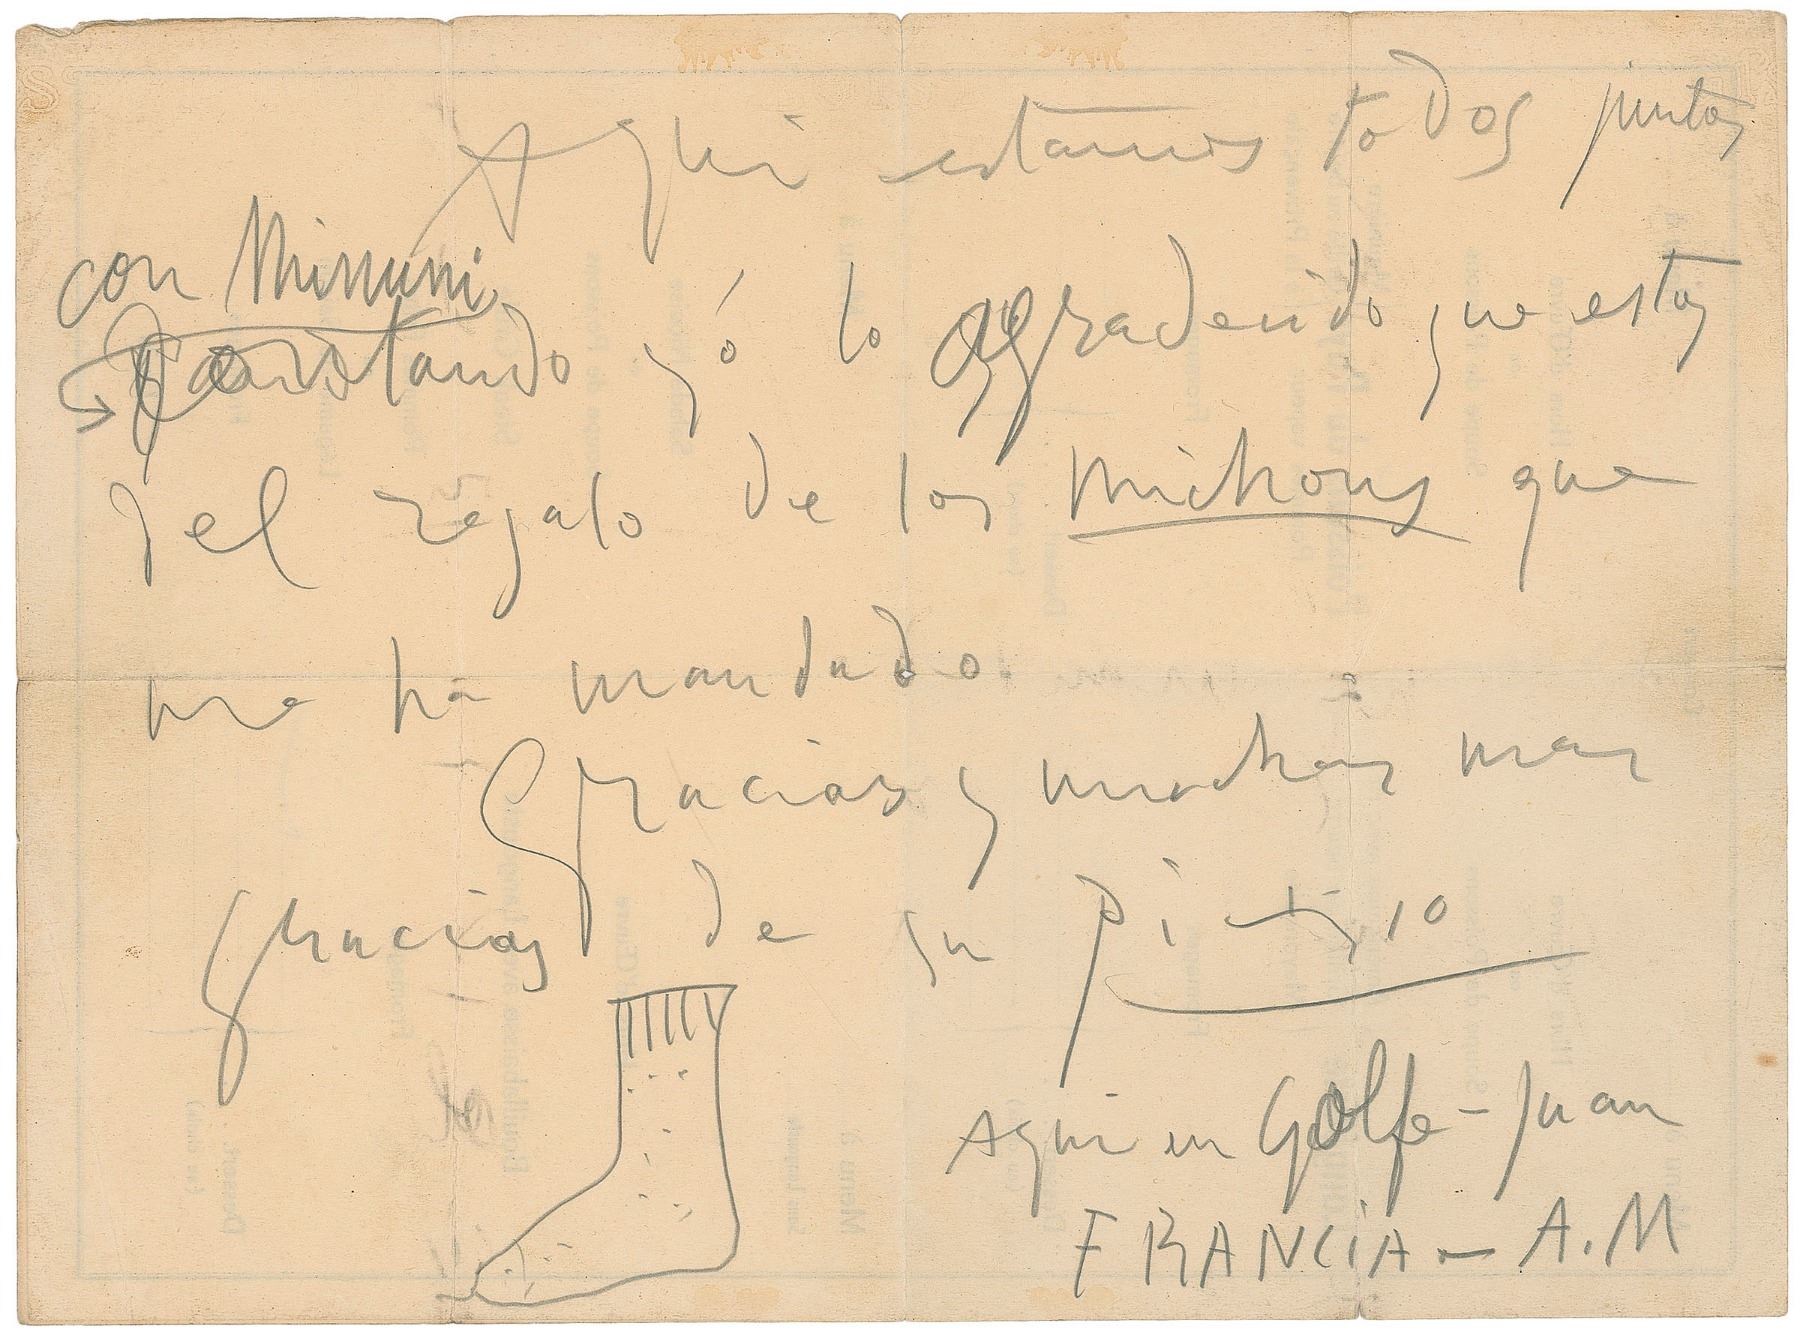 Aqui estamos todos juntos
con Minuni
contando yó lo agradecido que estoy
del regalo de los michons que
me ha mandado.
Gracias y muchas mas
gracias de su Picasso
Aqui en Golfe-Juan
FRANCIA - A.M